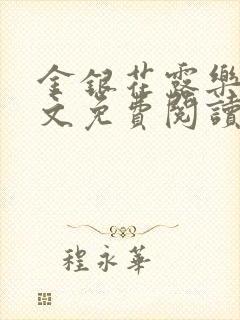 金銀花露樂
文免費閱讀
程永華